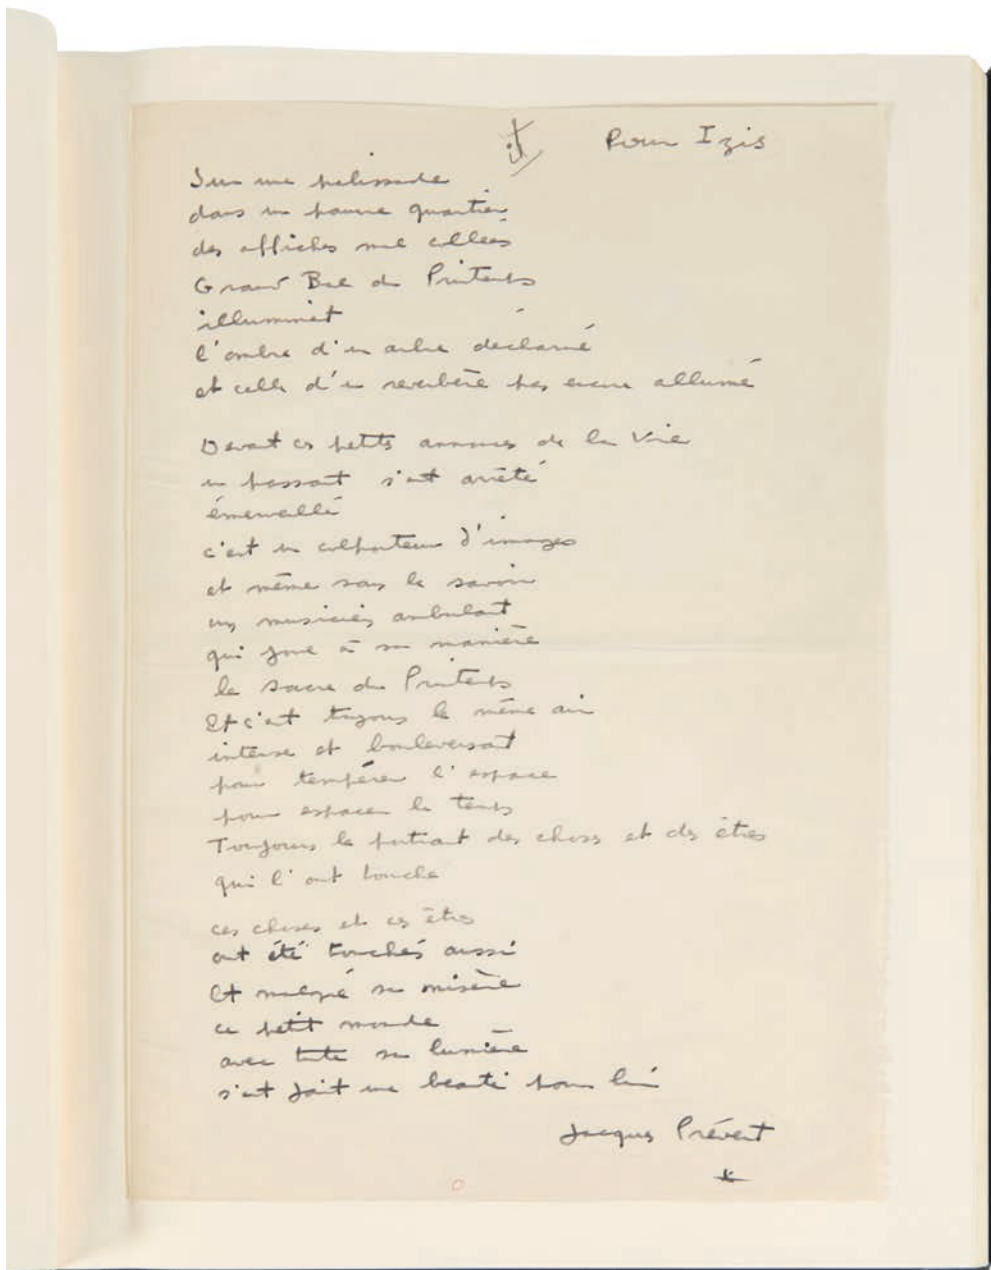 Pour Izis
Sur une palissade
dans un pauvre quartier
des affiches mal collées
Grand Bal du Printemps
illuminent
l'ombre d'un arbre décharné
et celle d'un reverbère pas encore allumé
Devant ces petites annonces de la Vie
un passant s'est arrêté
émerveillé
c'est un colporteur d'images
et même sans le savoir
un musicien ambulant
qui joue à sa manière
le Sacre du Printemps
Et c'est toujours le même air
intense et bouleversant
pour tempérer l'espace
pour espacer le temps
Toujours le portrait des choses et des êtres
qui l'ont touché
ces choses et ces êtres
ont été touchés aussi
Et malgré sa misère
ce petit monde
avec toute sa lumière
s'est fait une beauté pour lui
Jacques Prévert